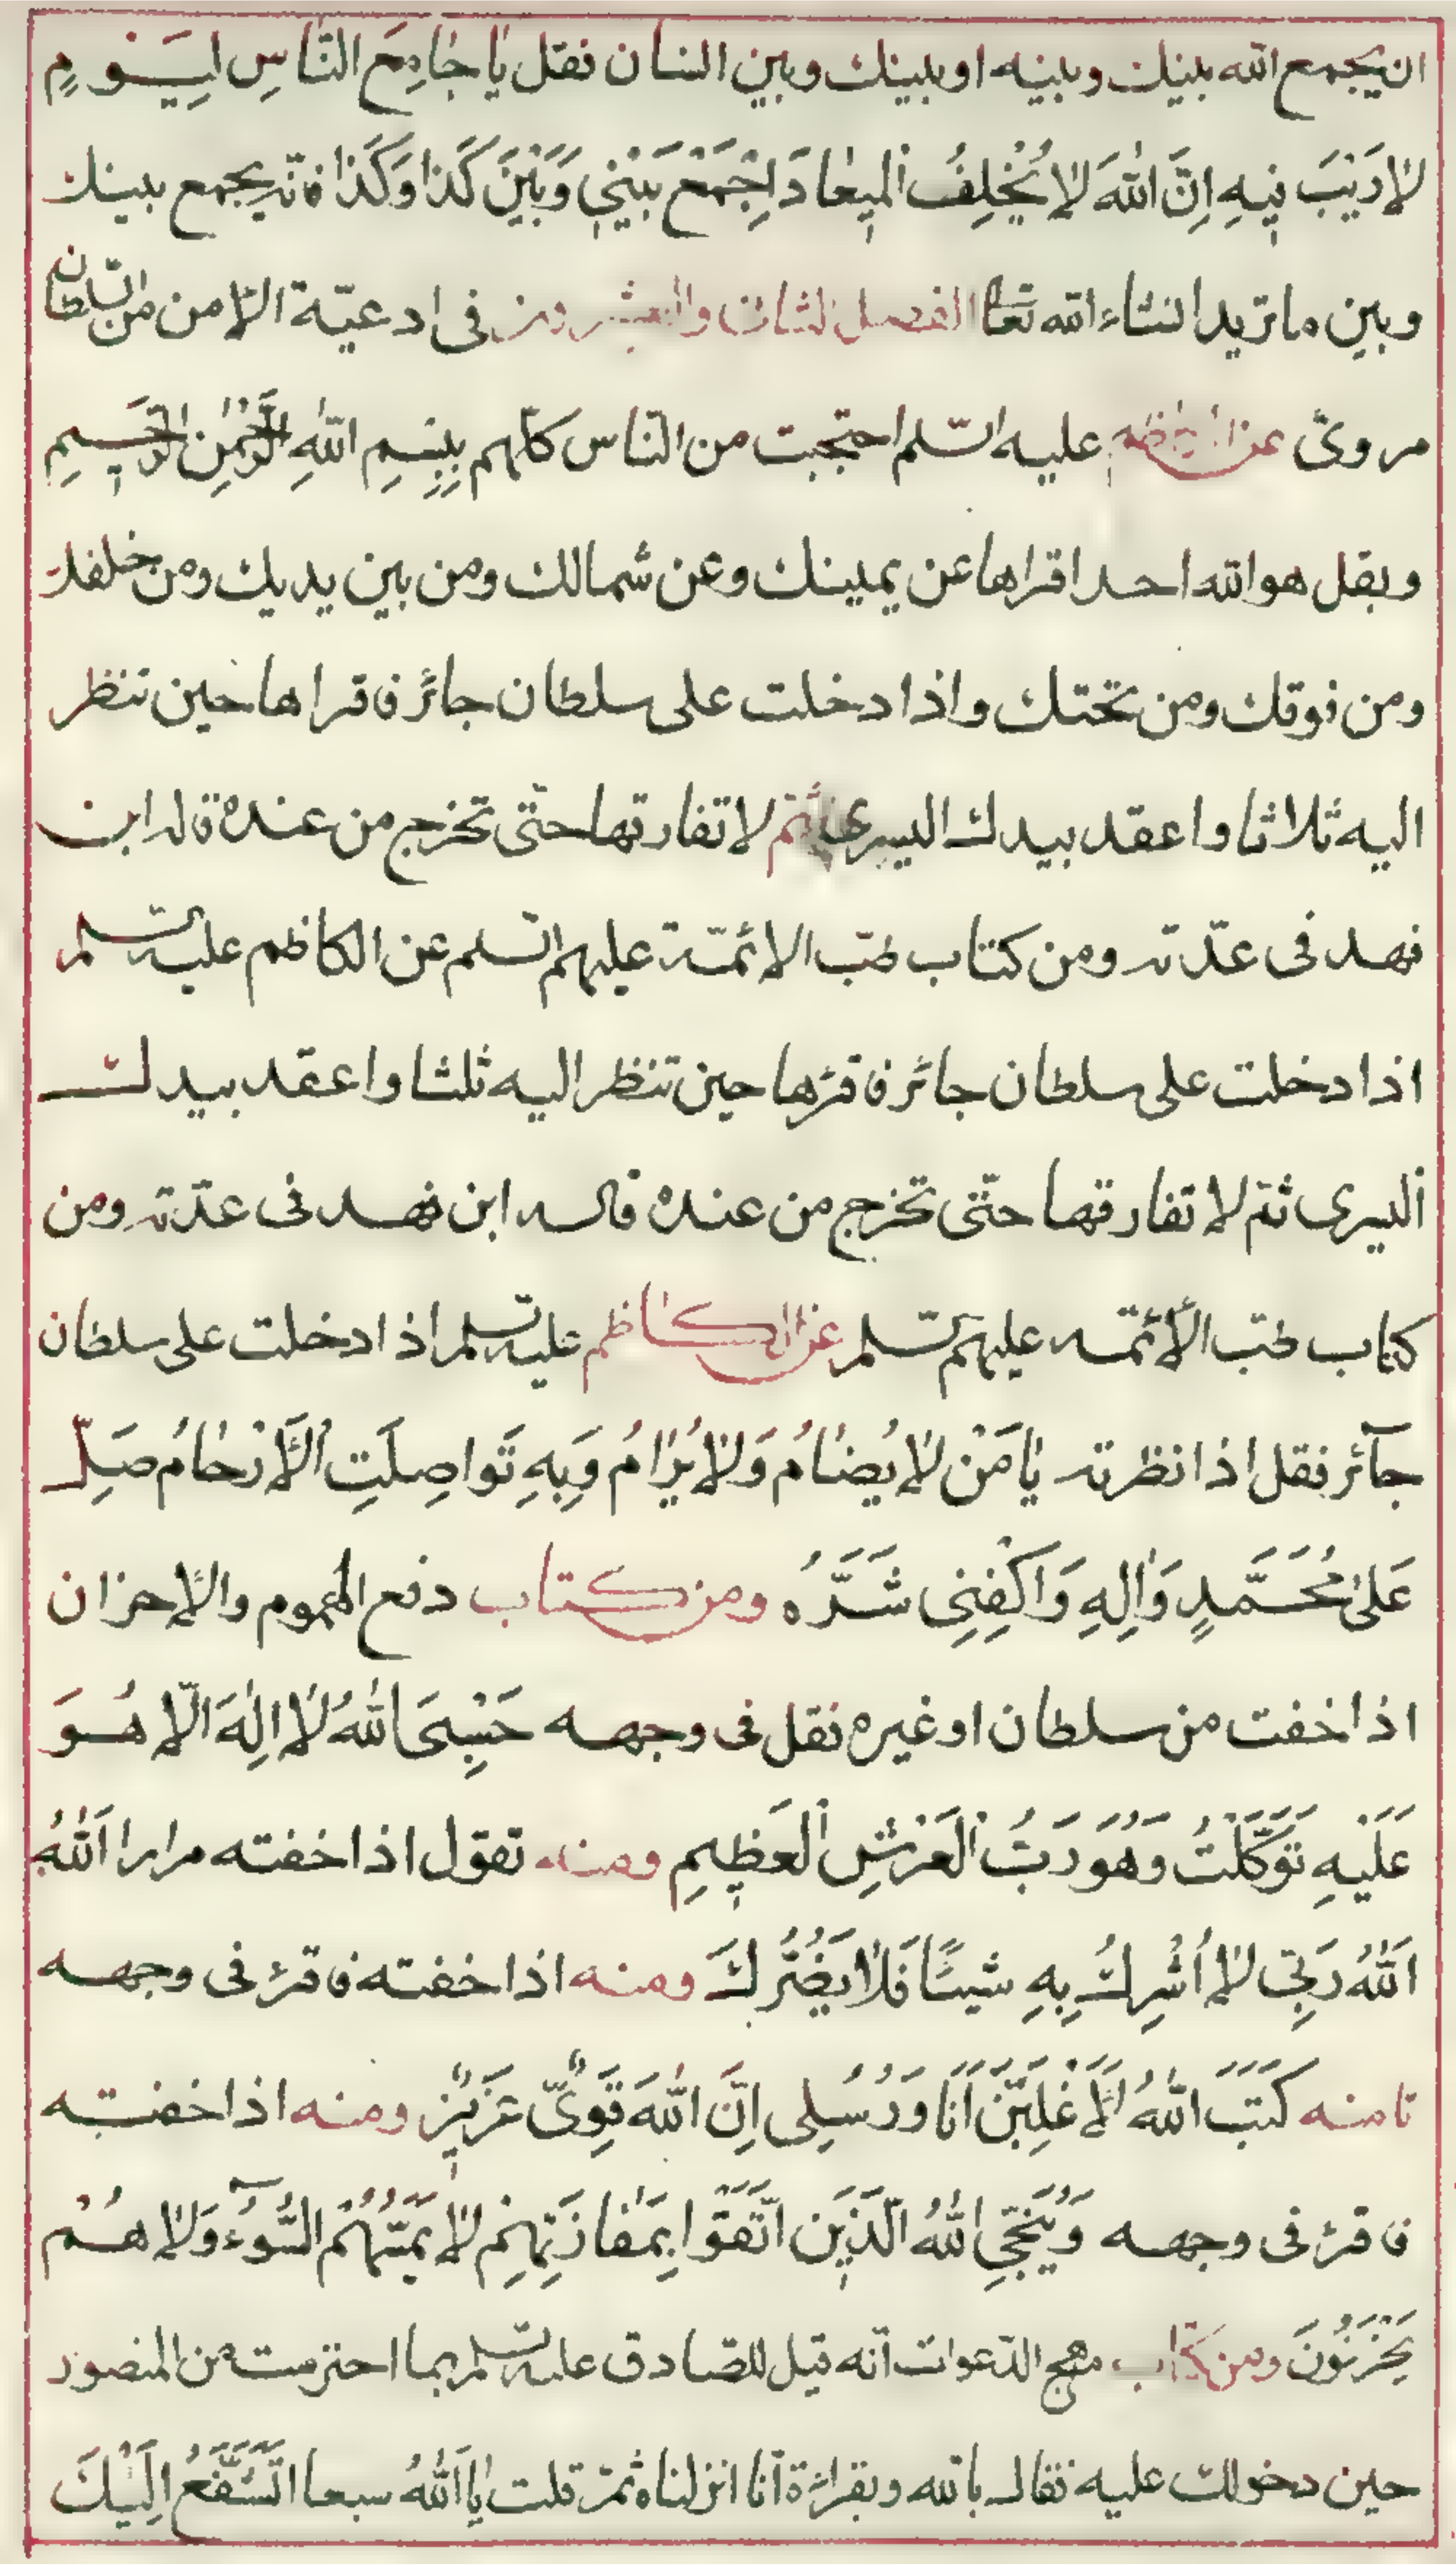 ان يجمع الله بينك وبينه او بينك وبين انسان فقل يا جامِعَ النّاسِ لِيَوْمٍ
لا رَيْبَ فيهِ اِنَّ اللهَ لا يُخْلِفُ الْميعادَ اِجْمَعْ بَيْني وَبَيْنَ كَذا وَكَذا فانّه يجمع بينك
وبين ما تريد انشاء الله تعالى الفصل الثانى والعشرون فى ادعيّة الامن من السّلطان
مروىّ عن عليه السّلم احتجبت من النّاس كلّهم بِبِسْمِ اللهِ الرَّحْمنِ الرَّحيمِ
وبقل هو الله احد اقراها عن يمينك وعن شمالك ومن بين يديك ومن خلفك
ومن فوقك ومن تحتك واذا دخلت على سلطان جائر فاقراها حين تنظر
اليه ثلاثا واعقد بيدك اليسرى ثمّ لا تفارقها حتّى تخرج من عنده قاله ابن
فهد فى عدّته ومن كتاب طبّ الائمّة عليهم السّلم عن الكاظم عليه السّلم
اذا دخلت على سلطان جائر فاقرءها حين تنظر اليه ثلثا واعقد بيدك
اليسرى ثمّ لا تفارقها حتّى تخرج من عنده قاله ابن فهد فى عدّته ومن
كتاب طبّ الأئمّه عليهم السّلم عن الكاظم عليه السّلم اذا دخلت على سلطان
جآئر فقل اذا نظرته يا مَنْ لا يُضامُ وَلا يُرامُ وَبِهِ تَواصِلَتِ الْأَرْحامُ صَلِّ
عَلى مُحَمَّدٍ وَالِهِ وَاكْفِنِى شَرَّهُ ومن كتاب دفع الهموم والاحزان
اذا خفت من سلطان او غيره فقل فى وجهه حَسْبِىَ اللهُ لا اِلهَ اِلّا هُوَ
عَلَيْهِ تَوَكَّلْتُ وَهُوَ رَبُّ الْعَرْشِ الْعَظيمِ ومنه تقول اذا خفته مرارا اَللهُ
اَللهُ رَبّى لا اُشْرِكُ بِهِ شَيْئًا فَلا يَضُرُّكَ ومنه اذا خفته فاقرء فى وجهه
تامنه كَتَبَ اللهُ لَأَغْلِبَنَّ اَنَا وَرُسُلى اِنَّ اللهَ قَوِىٌّ عَزيزٌ ومنه اذا خفته
فاقرء فى وجهه وَيُنَجِّى اللهُ الَّذينَ اتَّقَوْا بِمَفازَتِهِمْ لا يَمَسُّهُمُ السُّوءُ وَلا هُمْ
يَحْزَنُونَ ومن كتاب مهج الدّعوات انّه قيل للصّادق عليه السّلم بما احترست من المنصور
حين دخولك عليه فقال بالله وبقراءة انّا انزلناه ثمّ قلت يا اَللهُ سبعا اَتَشَفَّعُ اِلَيْكَ